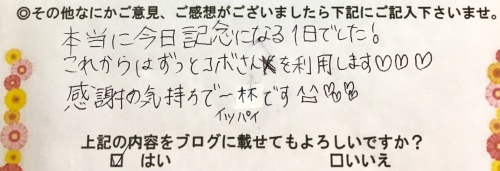 ◎その他なにかご意見、ご感想がございましたら下記にご記入下さいませ。
本当に今日記念になる1日でした!
これからはずっとコボさんを利用します♡♡♡
感謝の気持ちで一杯です
イッパイ
上記の内容をブログに載せてもよろしいですか?
☑ はい □いいえ